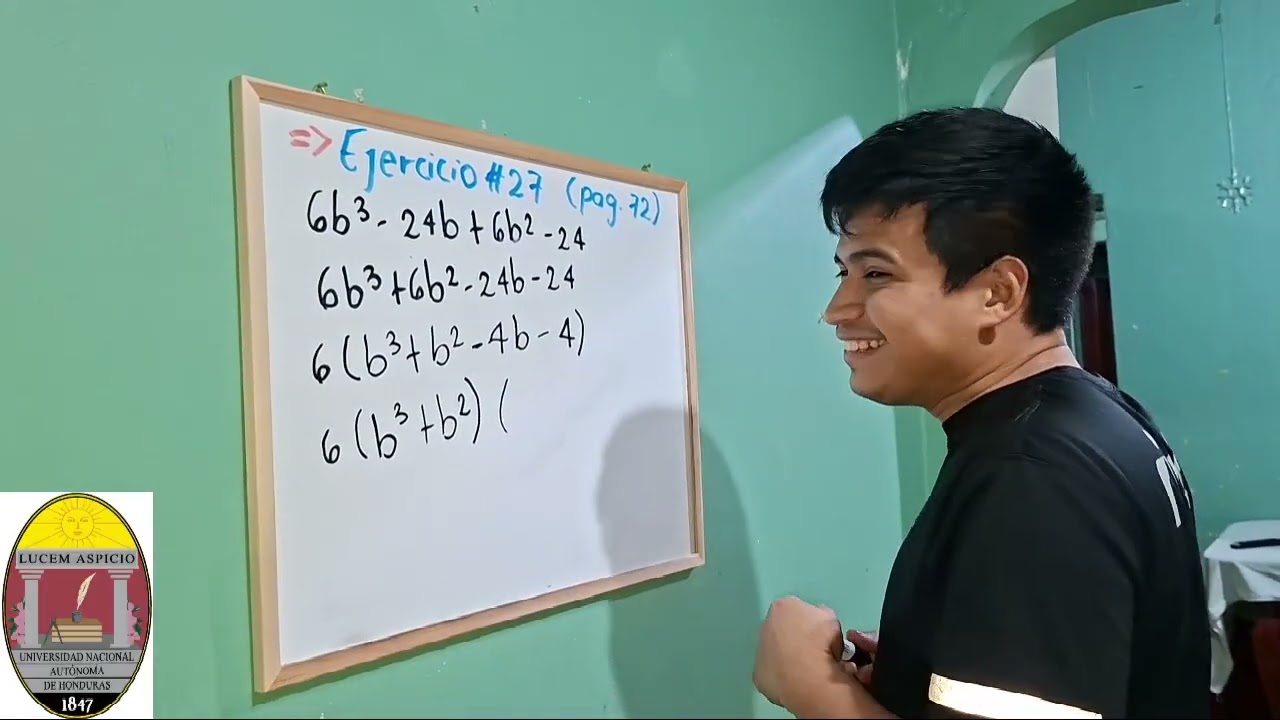 => Ejercicio #27 (pag. 72)
6b³ - 24b + 6b² - 24
6b³ + 6b² - 24b - 24
6 (b³ + b² - 4b - 4)
6 (b³ + b²) (
LUCEM ASPICIO
UNIVERSIDAD NACIONAL
AUTÓNOMA
DE HONDURAS
1847